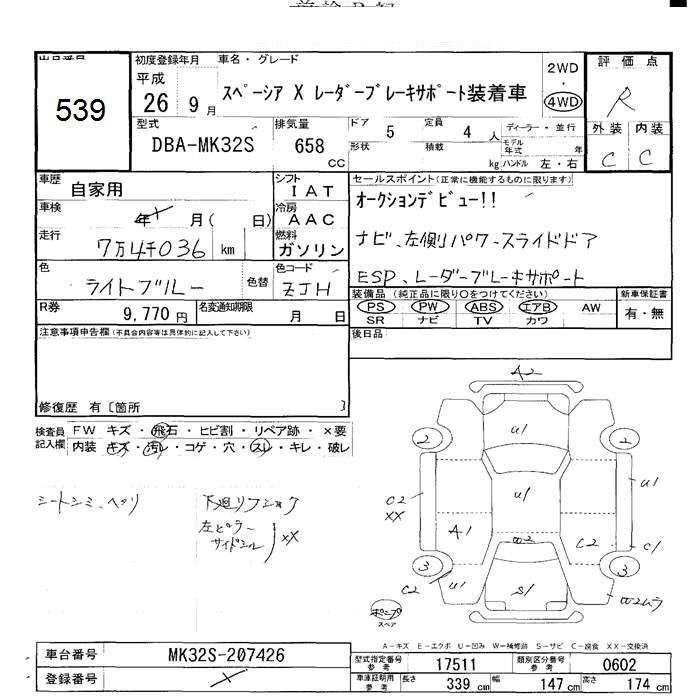 出品番号
539
初度登録年月
平成
26 9月
車名・グレード
スペーシア X レーダーブレーキサポート装着車
2WD
・
4WD
評価点
R
型式
DBA-MK32S
排気量
658
CC
ドア 5
形状
定員 4 人
積載 kg
ディーラー・並行
モデル年式 年
ハンドル 左・右
外装 内装
C C
車歴
自家用
シフト
IAT
車検
年 月( 日)
冷房
AAC
走行
7万4千036 km
燃料
ガソリン
色
ライトブルー
色替
色コード
ZJH
R券
9,770 円
名変通知期限
月 日
セールスポイント(正常に機能するものに限ります)
オークションデビュー!!
ナビ、左側パワースライドドア
ESP、レーダーブレーキサポート
装備品(純正品に限り○をつけてください)
PS PW ABS エアB AW
SR ナビ TV カワ
新車保証書
有・無
後日品
注意事項申告欄(不具合内容等は具体的に記入して下さい)
修復歴 有〔箇所 〕
検査員
記入欄
FW キズ・飛石・ヒビ割・リペア跡・×要
内装 キズ・汚レ・コゲ・穴・スレ・キレ・破レ
シートシミ、ヘタリ
左ピラー
サイドシル
XX
A2
2
U1
2
C2
XX
U1
U1
A1
W2
C2
C1
3
3
C2
U1
S1
W2ムラ
ポンプ
スペア
A-キズ E-エクボ U-凹み W-補修跡 S-サビ C-腐食 XX-交換済
車台番号
MK32S-207426
登録番号
型式指定番号
参考
17511
類別区分番号
参考
0602
車庫証明用
参考
長さ 339 cm
幅 147 cm
高さ 174 cm